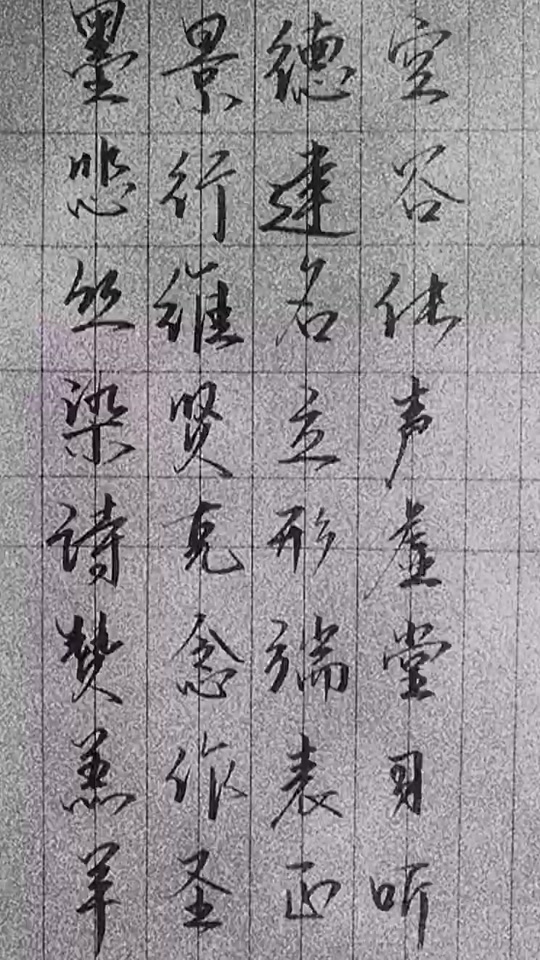 墨悲丝染诗赞羔羊
景行维贤克念作圣
德建名立形端表正
空谷传声虚堂习听